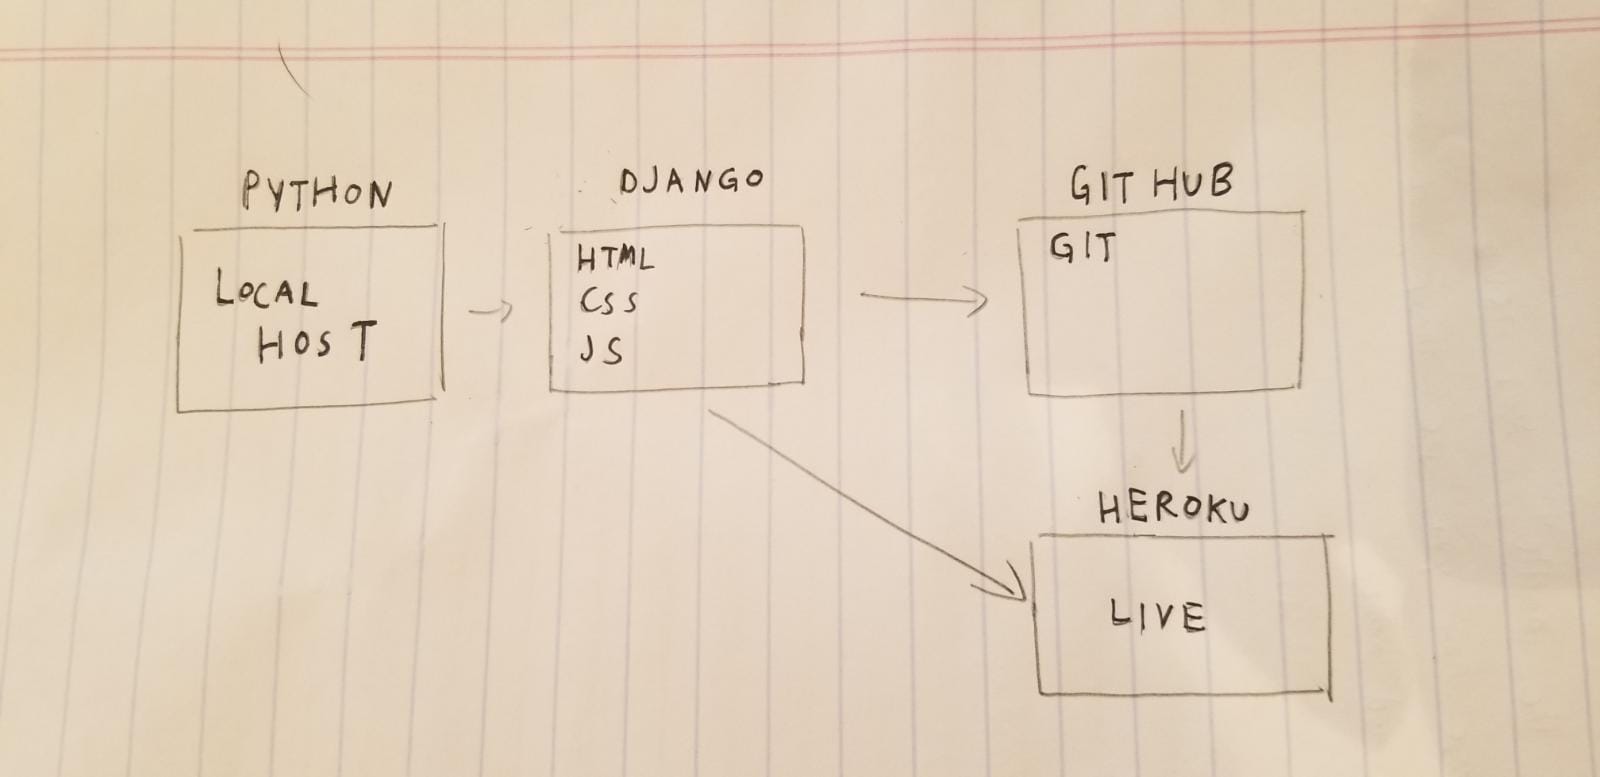 PYTHON
LOCAL
HOST
DJANGO
HTML
CSS
JS
GIT HUB
GIT
HEROKU
LIVE